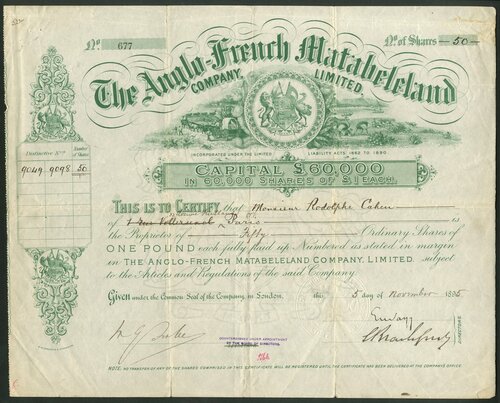 No. 677 No. of Shares 50
The Anglo-French Matabeleland
COMPANY, LIMITED.
INCORPORATED UNDER THE LIMITED LIABILITY ACTS 1862 TO 1890
CAPITAL £60,000
IN 60,000 SHARES OF £1 EACH.
Distinctive Nos. Number of Shares
9049 9098 50
THIS IS TO CERTIFY that Monsieur Rodolphe Cahen
of Paris is
the Proprietor of Fifty Ordinary Shares of
ONE POUND each fully paid up Numbered as stated in margin
in THE ANGLO-FRENCH MATABELELAND COMPANY, LIMITED. subject
to the Articles and Regulations of the said Company.
Given under the Common Seal of the Company in London, this 5 day of November 1895
DIRECTORS
COUNTERSIGNED UNDER APPOINTMENT
BY THE BOARD OF DIRECTORS.
NOTE. NO TRANSFER OF ANY OF THE SHARES COMPRISED IN THIS CERTIFICATE WILL BE REGISTERED UNTIL THE CERTIFICATE HAS BEEN DELIVERED AT THE COMPANY'S OFFICE.